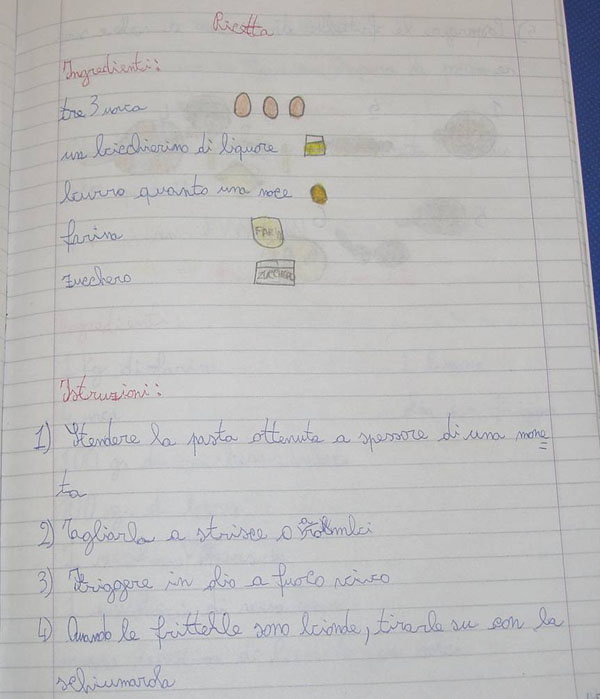 Ricetta
Ingredienti:
tre 3 uova
un bicchierino di liquore
burro quanto una noce
farina FARIN
zucchero ZUCCHERO
Istruzioni:
1) Stendere la pasta ottenuta a spessore di una mone
ta
2) Tagliarla a strisce o rombi
3) Friggere in olio a fuoco vivo
4) Quando le frittelle sono bionde, tirarle su con la
schiumarda